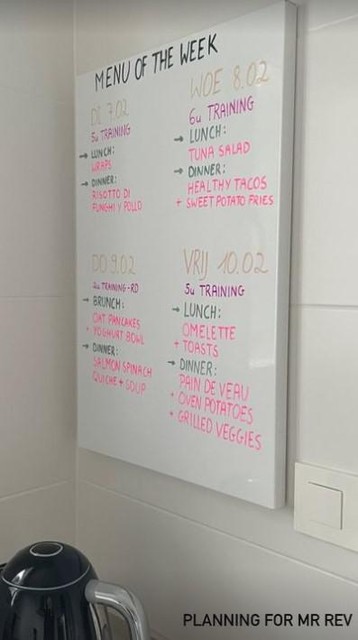 MENU OF THE WEEK
DI 7.02
5u TRAINING
→ LUNCH:
WRAPS
→ DINNER:
RISOTTO DI
FUNGHI Y POLLO
WOE 8.02
6u TRAINING
→ LUNCH:
TUNA SALAD
→ DINNER:
HEALTHY TACOS
+ SWEET POTATO FRIES
DO 9.02
TRAINING-RD
→ BRUNCH:
OAT PANCAKES
+ YOGHURT BOWL
→ DINNER:
SALMON SPINACH
QUICHE + SOUP
VRIJ 10.02
5u TRAINING
→ LUNCH:
OMELETTE
+ TOASTS
→ DINNER:
PAIN DE VEAU
+ OVEN POTATOES
+ GRILLED VEGGIES
PLANNING FOR MR REV